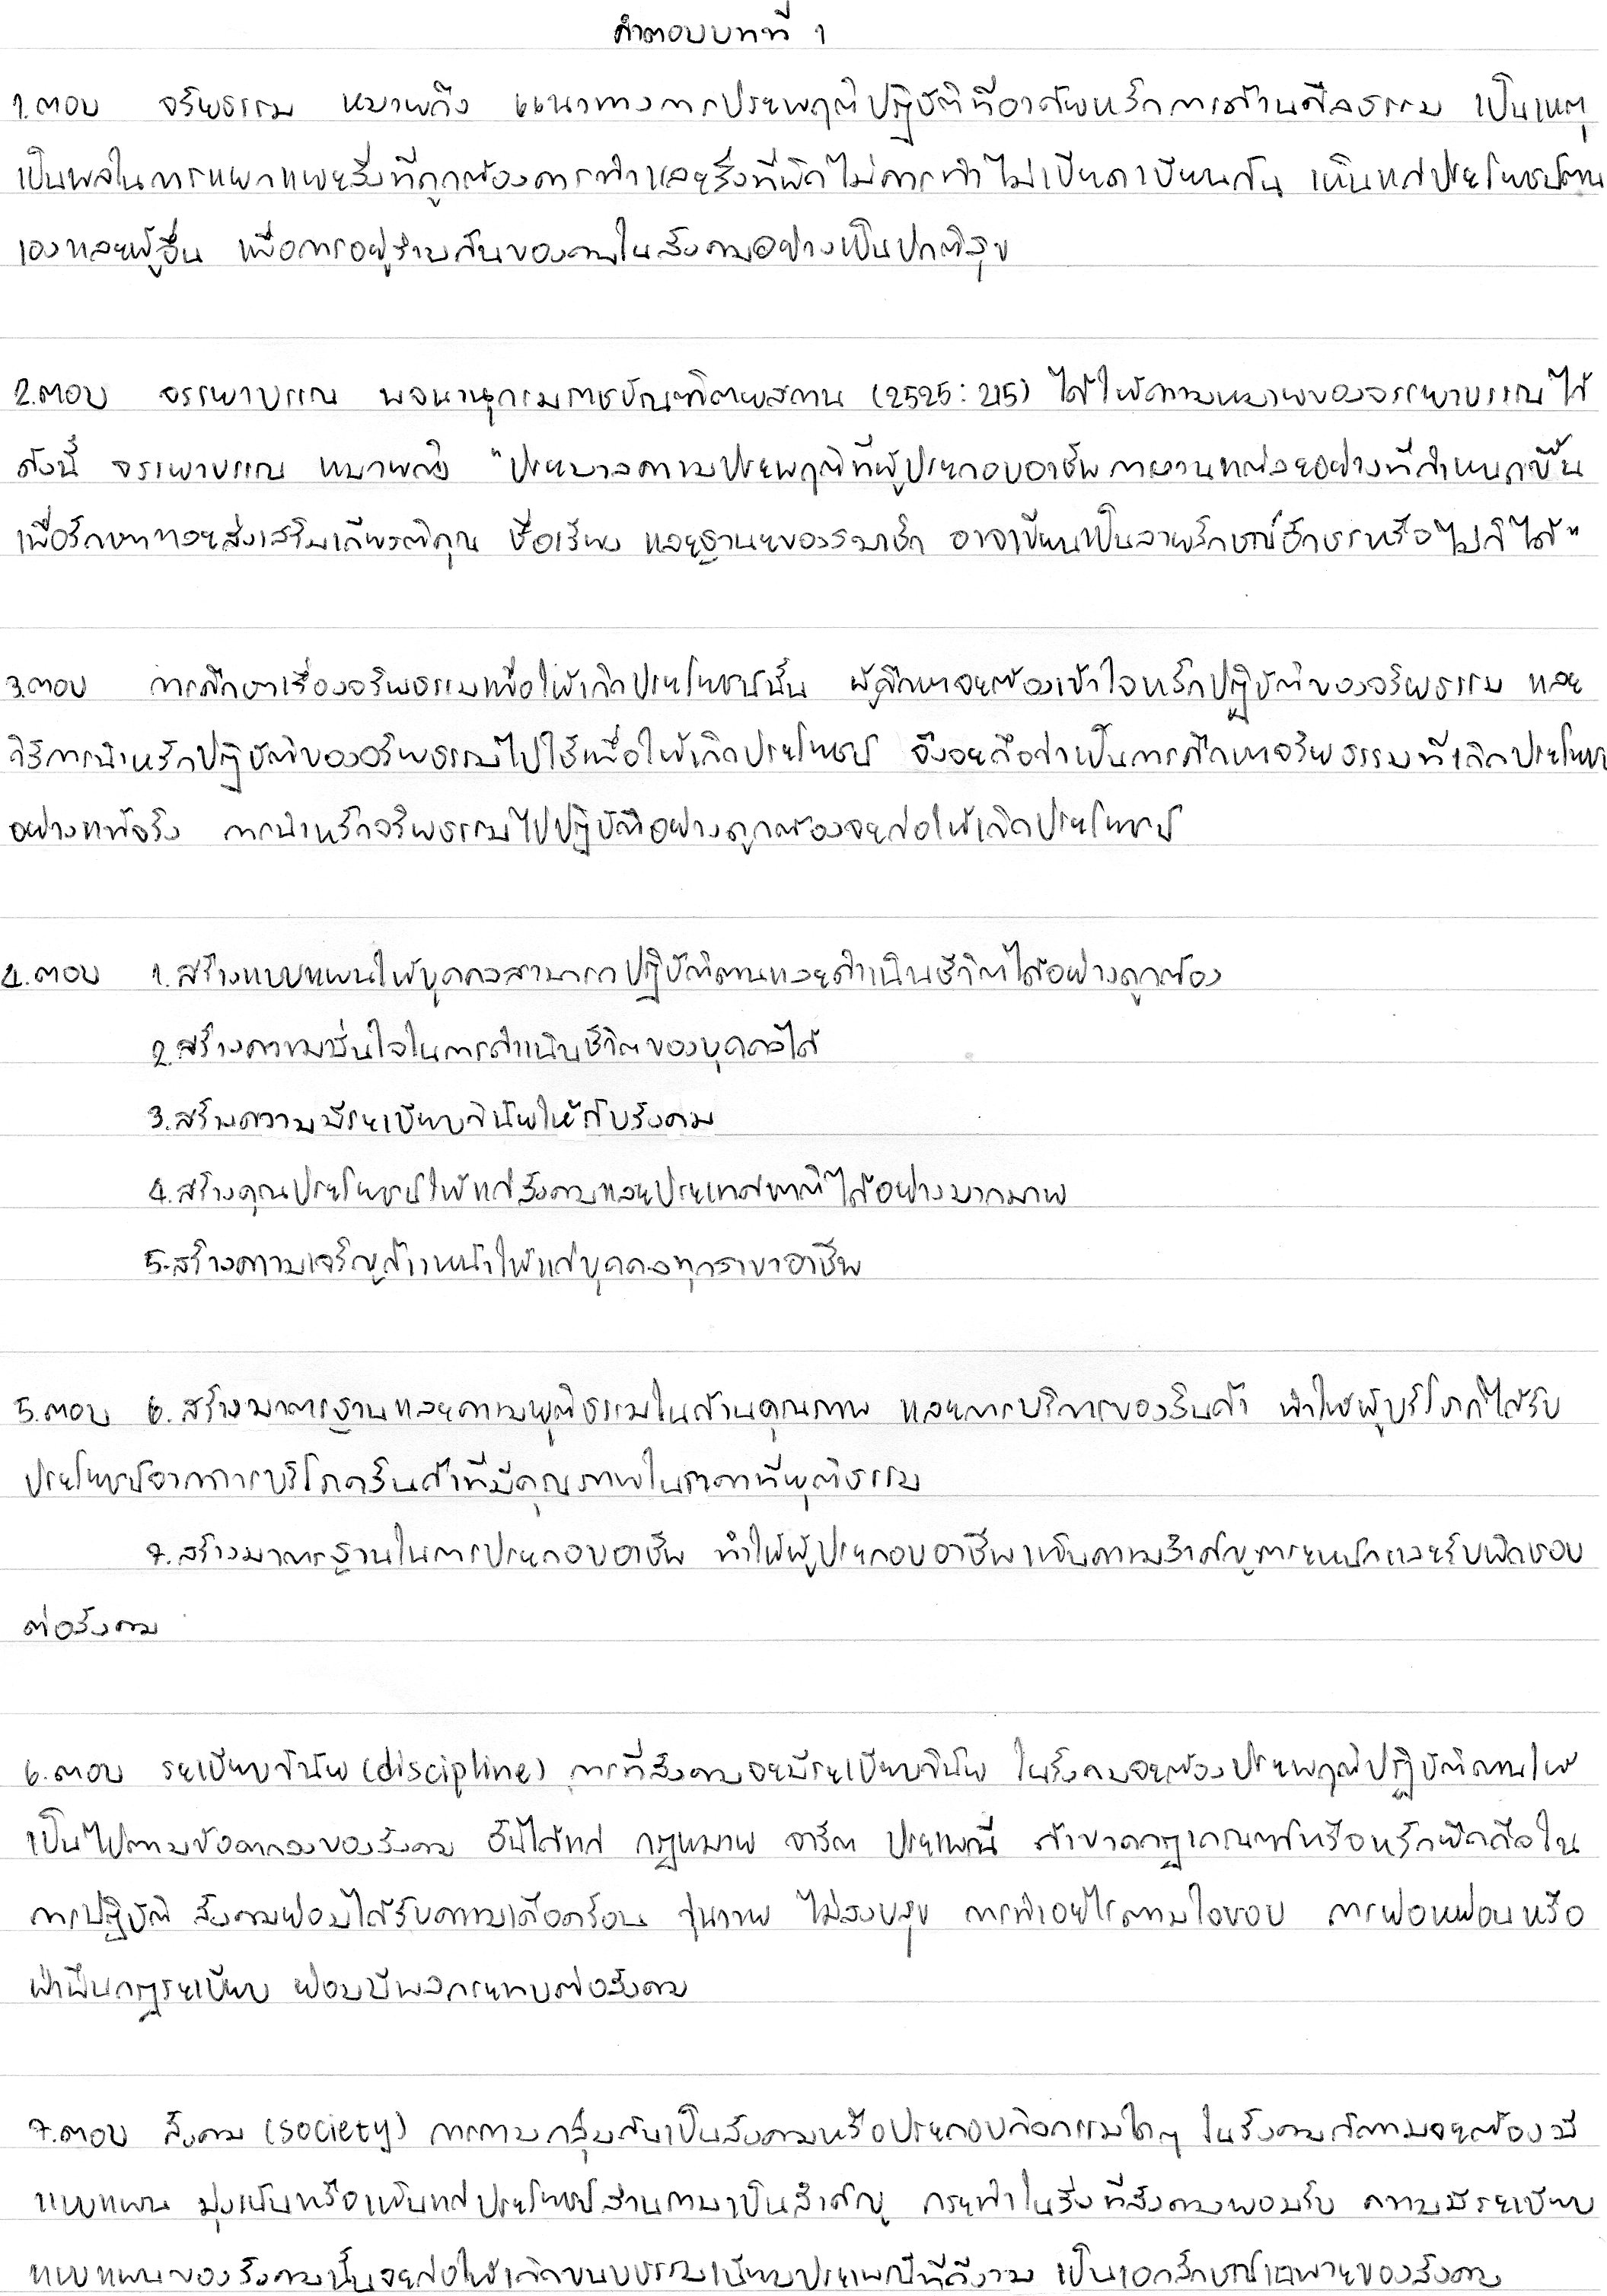 คำตอบบทที่ 1
1.ตอบ จริยธรรม หมายถึง แนวทางการประพฤติปฏิบัติที่อาศัยหลักการด้านศีลธรรม เป็นเหตุ
เป็นผลในการแยกแยะสิ่งที่ถูกต้องควรทำและสิ่งที่ผิดไม่ควรทำ ไม่เบียดเบียนกัน เห็นแก่ประโยชน์ตน
เองและผู้อื่น เพื่อการอยู่ร่วมกันของคนในสังคมอย่างเป็นปกติสุข
2.ตอบ จรรยาบรรณ พจนานุกรมราชบัณฑิตยสถาน (2525: 215) ได้ให้ความหมายของจรรยาบรรณไว้
ดังนี้ จรรยาบรรณ หมายถึง "ประมวลความประพฤติที่ผู้ประกอบอาชีพการงานแต่ละอย่างที่กำหนดขึ้น
เพื่อรักษาและส่งเสริมเกียรติคุณ ชื่อเสียง และฐานะของสมาชิก อาจเขียนเป็นลายลักษณ์อักษรหรือไม่ก็ได้"
3.ตอบ การศึกษาเรื่องจริยธรรมเพื่อให้เกิดประโยชน์นั้น ผู้ศึกษาจะต้องเข้าใจหลักปฏิบัติของจริยธรรม และ
วิธีการนำหลักปฏิบัติของจริยธรรมไปใช้เพื่อให้เกิดประโยชน์ จึงจะถือว่าเป็นการศึกษาจริยธรรมที่เกิดประโยชน์
อย่างแท้จริง การนำหลักจริยธรรมไปปฏิบัติอย่างถูกต้องจะก่อให้เกิดประโยชน์
4.ตอบ 1.สร้างแบบแผนให้บุคคลสามารถปฏิบัติตนและดำเนินชีวิตได้อย่างถูกต้อง
2.สร้างความมั่นใจในการดำเนินชีวิตของบุคคลได้
3.สร้างความมีระเบียบวินัยให้กับสังคม
4.สร้างคุณประโยชน์ให้แก่สังคมและประเทศชาติได้อย่างมากมาย
5.สร้างความเจริญก้าวหน้าให้แก่บุคคลทุกสาขาอาชีพ
5.ตอบ 6.สร้างมาตรฐานและความยุติธรรมในด้านคุณภาพ และการบริการของสินค้า ทำให้ผู้บริโภคได้รับ
ประโยชน์จากการบริโภคสินค้าที่มีคุณภาพในราคาที่ยุติธรรม
7.สร้างมาตรฐานในการประกอบอาชีพ ทำให้ผู้ประกอบอาชีพเห็นความสำคัญตระหนักและรับผิดชอบ
ต่อสังคม
6.ตอบ ระเบียบวินัย (discipline) การที่สังคมจะมีระเบียบวินัย ในสังคมจะต้องประพฤติปฏิบัติตนให้
เป็นไปตามข้อตกลงของสังคม อันได้แก่ กฎหมาย จารีต ประเพณี ถ้าขาดกฎเกณฑ์หรือหลักยึดถือใน
การปฏิบัติ สังคมย่อมได้รับความเดือดร้อน วุ่นวาย ไม่สงบสุข การทำอะไรตามใจชอบ การย่อหย่อนหรือ
ฝ่าฝืนกฎระเบียบ ย่อมมีผลกระทบต่อสังคม
7.ตอบ สังคม (society) การรวมกลุ่มกันเป็นสังคมหรือประกอบกิจกรรมใดๆ ในสังคมก็ตามจะต้องมี
แบบแผน มุ่งเน้นหรือเห็นแก่ประโยชน์ส่วนรวมเป็นสำคัญ กระทำในสิ่งที่สังคมยอมรับ ความมีระเบียบ
แบบแผนของสังคมนั้นจะก่อให้เกิดขนบธรรมเนียมประเพณีที่ดีงาม เป็นเอกลักษณ์เฉพาะของสังคม